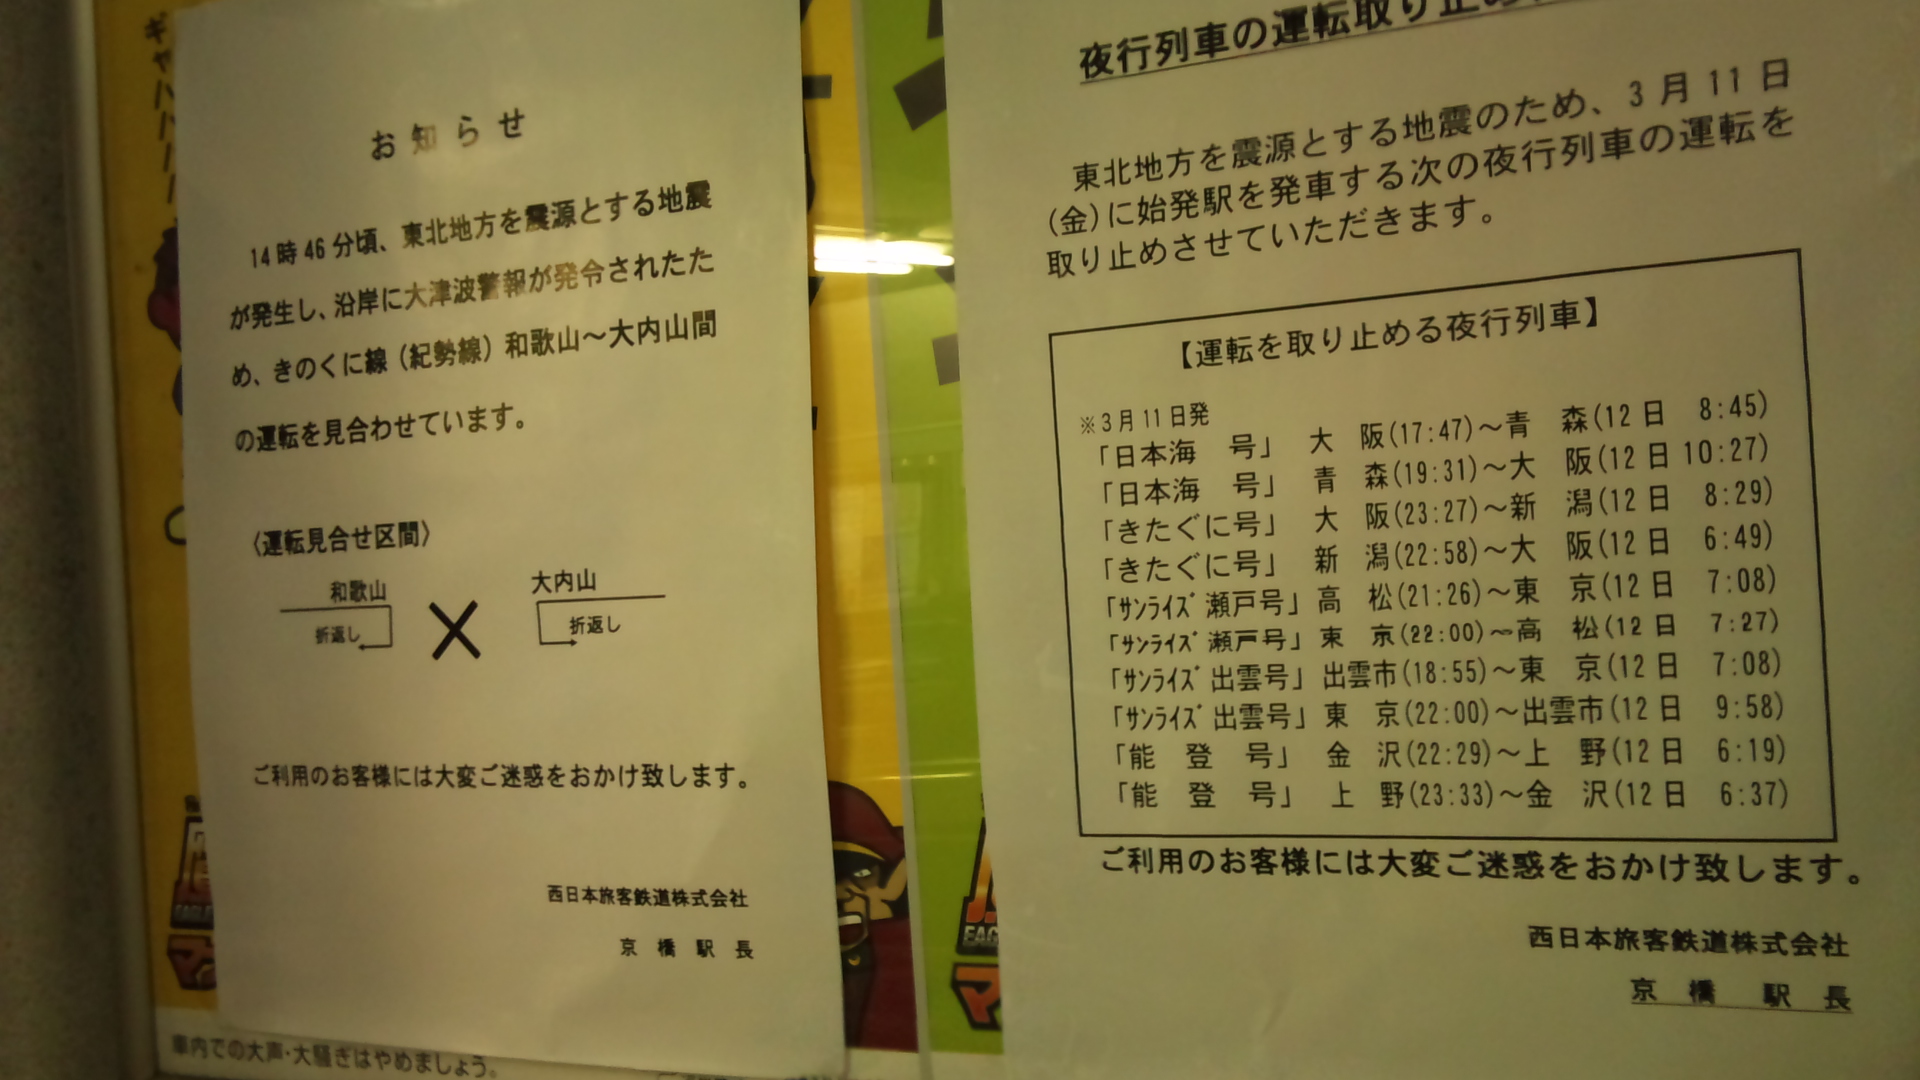 お知らせ
14時46分頃、東北地方を震源とする地震
が発生し、沿岸に大津波警報が発令されたた
め、きのくに線（紀勢線）和歌山～大内山間
の運転を見合わせています。
〈運転見合せ区間〉
和歌山
大内山
折返し
折返し
ご利用のお客様には大変ご迷惑をおかけ致します。
西日本旅客鉄道株式会社
京橋駅長
車内での大声・大騒ぎはやめましょう。
夜行列車の運転取り止め
東北地方を震源とする地震のため、3月11日
(金)に始発駅を発車する次の夜行列車の運転を
取り止めさせていただきます。
【運転を取り止める夜行列車】
※3月11日発
「日本海　号」 大　阪(17:47)～青　森(12日　8:45)
「日本海　号」 青　森(19:31)～大　阪(12日 10:27)
「きたぐに号」 大　阪(23:27)～新　潟(12日　8:29)
「きたぐに号」 新　潟(22:58)～大　阪(12日　6:49)
「ｻﾝﾗｲｽﾞ瀬戸号」 高　松(21:26)～東　京(12日　7:08)
「ｻﾝﾗｲｽﾞ瀬戸号」 東　京(22:00)～高　松(12日　7:27)
「ｻﾝﾗｲｽﾞ出雲号」 出雲市(18:55)～東　京(12日　7:08)
「ｻﾝﾗｲｽﾞ出雲号」 東　京(22:00)～出雲市(12日　9:58)
「能　登　号」 金　沢(22:29)～上　野(12日　6:19)
「能　登　号」 上　野(23:33)～金　沢(12日　6:37)
ご利用のお客様には大変ご迷惑をおかけ致します。
西日本旅客鉄道株式会社
京橋駅長